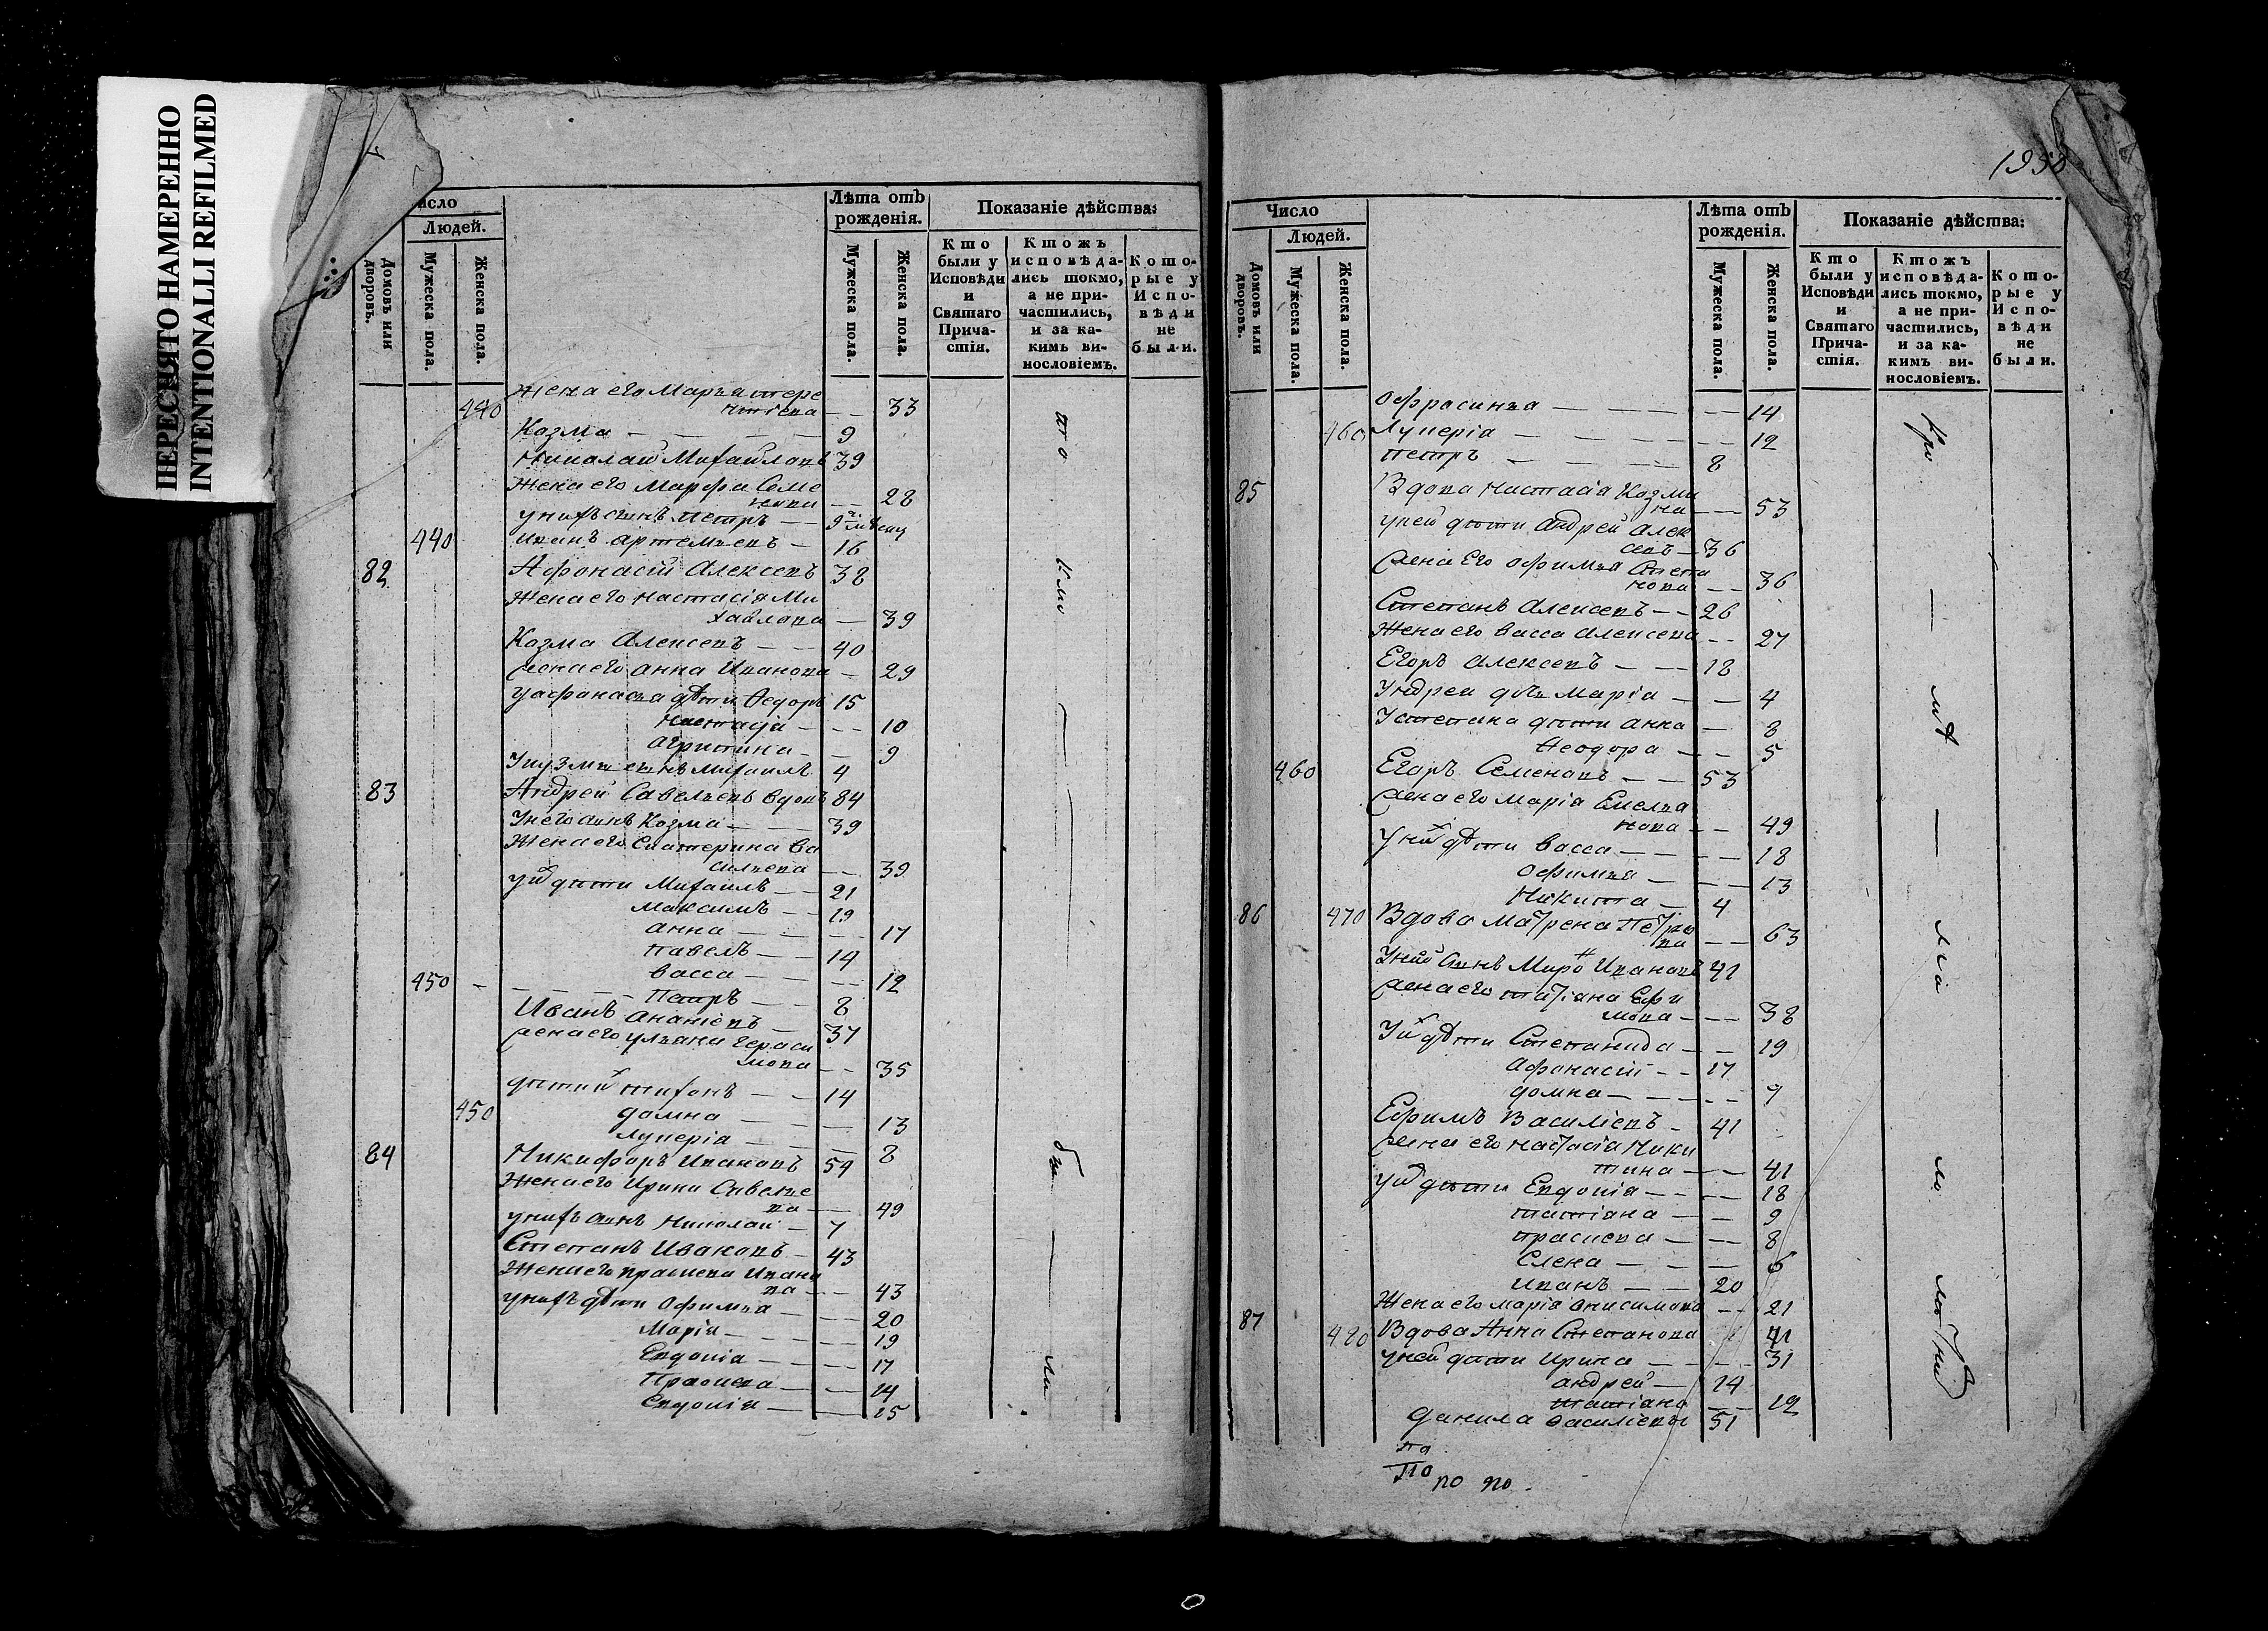 ПЕРЕСНЯТО НАМЕРЕННО
INTENTIONALLI REFILMED
исло
Людей.
Домовъ или дворовъ.
Мужеска пола.
Женска пола.
Лѣта отъ рожденія.
Мужеска пола.
Женска пола.
Показаніе дѣйства:
Кто были у Исповѣди и Святаго Прича-стія.
Ктожъ исповѣда-лись токмо, а не при-частились, и за ка-кимъ ви-нословіемъ.
Кото-рые у Испо-вѣди не были.
440 Жена его Марья
33
Козма — 9
Николай Михайловъ 39
Жена его Марфа Семе
нова — 28
у нихъ сынъ Петръ — 9
440 Иванъ Артемьевъ — 16
82 Афонасій Алексеевъ 38
Жена его Настасія Ми
хайлова — 39
Козма Алексевъ — 40
Жена его Анна Иванова — 29
У афонасья дѣти Ѳедоръ 15
Настасія — 10
Агрипина — 9
У кузмы сынъ Михаилъ 4
83 Андрей Савельевъ вдовъ 84
У него сынъ Козма — 39
Жена его Екатерина Ва
сильева — 39
дѣти Михаилъ — 21
Максимъ — 19
Анна — 17
Павелъ — 14
Васса — 12
450 Петръ — 8
Иванъ Ананіевъ — 37
Жена его Ульяна Гераси
мова — 35
дѣти Тихонъ — 14
450 Домна — 13
Лукерія — 8
84 Никифоръ Ивановъ 54
Жена его Ирина Савелье
ва — 49
у нихъ сынъ Николай — 7
Степанъ Ивановъ — 43
Жена его Прасковья Ивано
ва — 43
у нихъ дѣти Офимья — 20
Марія — 19
Евдокія — 17
14
Евдокія — 15
195
Число
Людей.
Домовъ или дворовъ.
Мужеска пола.
Женска пола.
Лѣта отъ рожденія.
Мужеска пола.
Женска пола.
Показаніе дѣйства:
Кто были у Исповѣди и Святаго Прича-стія.
Ктожъ исповѣда-лись токмо, а не при-частились, и за ка-кимъ ви-нословіемъ.
Кото-рые у Испо-вѣди не были.
Офросинья — 14
460 Лукерія — 12
Петръ — 8
85 Вдова Настасія Козми
на — 53
у ней дѣти Андрей Алек
севъ — 36
Жена его Офимья Степа
нова — 36
Степанъ Алексевъ — 26
Жена его Васса Алексева — 27
Егоръ Алексевъ — 18
дочь Марія — 4
У степана дѣти Анна — 8
Ѳеодора — 5
460 Егоръ Семеновъ — 53
Жена его Марія Емелья
нова — 49
У них дѣти Васса — 18
Офимья — 13
Никита — 4
86 470 Вдова Матрена Петро
ва — 63
У ней сынъ Миронъ Ивановъ 41
Жена его Татіана Ефи
мова — 38
дѣти Степанида — 19
Афонасій — 17
Домна — 9
Ефимъ Василіевъ — 41
Жена его Настасія Ники
тина — 41
дѣти Евдокія — 18
Татіана — 9
Прасковья — 8
Елена — 6
Иванъ — 20
Жена его Марія Анисимова — 21
87 480 Вдова Анна Степанова
у ней дѣти Ирина — 31
Андрей — 14
Татіана — 12
Данила Василіевъ 51
па
По по по